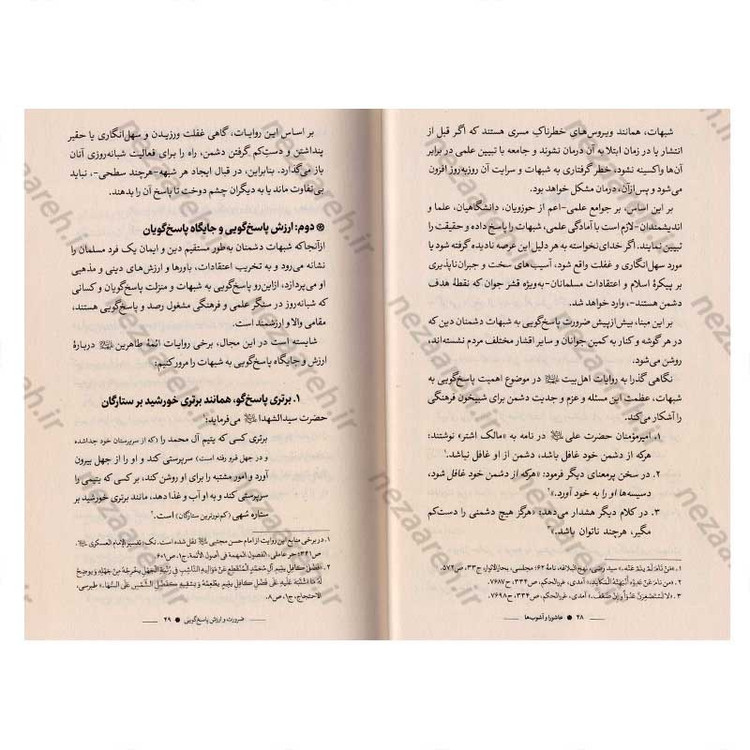 شبهات، همانند ویروس‌های خطرناکِ مسری هستند که اگر قبل از
انتشار یا در زمان ابتلا به آن درمان نشوند و جامعه با تبیین علمی در برابر
آن‌ها واکسینه نشود، خطر گرفتاری به شبهات و سرایت آن روزبه‌روز افزون
می‌شود و پس‌ازآن، درمان مشکل خواهد بود.
بر این اساس، بر جوامع علمی-اعم از حوزویان، دانشگاهیان، علما و
اندیشمندان-لازم است با آمادگی علمی، شبهات را پاسخ داده و حقیقت را
تبیین نمایند. اگر خدای‌نخواسته به هر دلیل این عرصه نادیده گرفته شود یا
مورد سهل‌انگاری و غفلت واقع شود، آسیب‌های سخت و جبران‌ناپذیری
بر پیکرهٔ اسلام و اعتقادات مسلمانان-به‌ویژه قشر جوان که نقطهٔ هدف
دشمن هستند-، وارد خواهد شد.
بر این مبنا، بیش‌ازپیش ضرورت پاسخ‌گویی به شبهات دشمنان دین که
در هر گوشه و کنار به کمین جوانان و سایر اقشار مختلف مردم نشسته‌اند،
روشن می‌شود.
نگاهی گذرا به روایات اهل‌بیت در موضوع اهمیت پاسخ‌گویی به
شبهات، عظمت این مسئله و عزم و جدیت دشمن برای شبیخون فرهنگی
را آشکار می‌کند.
۱. امیرمؤمنان حضرت علی در نامه به «مالک اشتر» نوشتند:
هرکه از دشمن خود غافل باشد، دشمن از او غافل نباشد.۱
۲. در سخن پرمعنای دیگر فرمود: «هرکه از دشمن خود غافل شود،
دسیسه‌ها او را به خود آورد.»۲
۳. در کلام دیگر هشدار می‌دهد: «هرگز هیچ دشمنی را دست‌کم
مگیر، هرچند ناتوان باشد.»۳
۱. «مَن نَامَ لَم یُنَم عَنه.» سید رضی، نهج‌البلاغه، نامهٔ ۶۲؛ مجلسی، بحارالانوار، ج۳۳، ص۵۷۲.
۲. آمدی، غررالحکم، ص۳۳۴، ح۷۶۸۷.
۳. آمدی، غررالحکم، ص۳۳۴، ح۷۶۹۸.
۲۸ ● عاشورا و آشوب‌ها
بر اساس این روایات، گاهی غفلت ورزیدن و سهل‌انگاری یا حقیر
پنداشتن و دست‌کم گرفتن دشمن، راه را برای فعالیت شبانه‌روزی آنان
باز می‌گذارد. بنابراین، در قبال ایجاد هر شبهه-هرچند سطحی-، نباید
بی‌تفاوت ماند یا به دیگران چشم دوخت تا پاسخ آن را بدهند.
دوم: ارزش پاسخ‌گویی و جایگاه پاسخ‌گویان
ازآنجاکه شبهات دشمنان به‌طور مستقیم دین و ایمان یک فرد مسلمان را
نشانه می‌رود و به تخریب اعتقادات، باورها و ارزش‌های دینی و مذهبی
او می‌پردازد، ازاین‌رو پاسخ‌گویی به شبهات و منزلت پاسخ‌گویان و کسانی
که شبانه‌روز در سنگر علمی و فرهنگی مشغول رصد و پاسخ‌گویی هستند،
مقامی والا و ارزشمند است.
شایسته است در این مجال، برخی روایات ائمهٔ طاهرین دربارهٔ
ارزش و جایگاه پاسخ‌گویی به شبهات را مرور کنیم:
۱. برتری پاسخ‌گو، همانند برتری خورشید بر ستارگان
حضرت سیدالشهدا می‌فرماید:
برتری کسی که یتیم آل محمد را (که از سرپرستان خود جداشده
و در جهل فرو رفته است) سرپرستی کند و او را از جهل بیرون
آورد و امور مشتبه را برای او روشن کند، بر کسی که یتیمی را
سرپرستی کند و به او آب و غذا دهد، مانند برتری خورشید بر
ستاره سُهی (کم‌نورترین ستارگان) است.۲
۱. در برخی منابع این روایت از امام حسن مجتبی نقل شده است. نک: تفسیر الإمام العسکری
ص۳۴۱؛ حر عاملی، الفصول المهمة فی أصول الأئمة، ج۱، ص۶۰۱.
طبرسی،
الاحتجاج، ج۱، ص۸.
ضرورت و ارزش پاسخ‌گویی ● ۲۹
nezaareh.ir